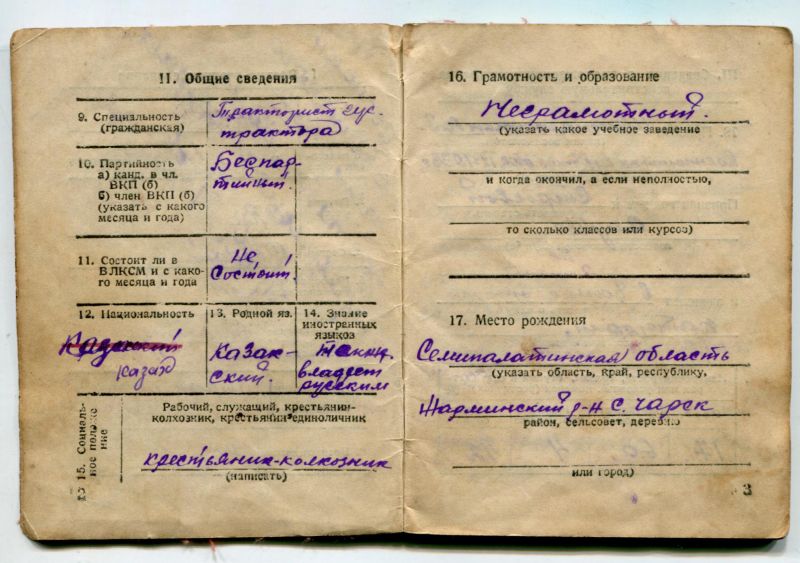 II. Общие сведения
9. Специальность
(гражданская)
Тракторист гус.
трактора
10. Партийность
а) канд. в чл.
ВКП (б)
б) член ВКП (б)
(указать с какого
месяца и года)
Беспар-
тийный.
11. Состоит ли в
ВЛКСМ и с како-
го месяца и года
Не
состоит.
12. Национальность
Казахский
казах
13. Родной яз.
Казак-
ский.
14. Знание
иностранных
языков
владеет
русским
15. Социаль-
ное положе-
ние
Рабочий, служащий, крестьянин-
колхозник, крестьянин-единоличник
крестьяник-колхозник
(написать)
16. Грамотность и образование
Неграмотный.
(указать какое учебное заведение
и когда окончил, а если неполностью,
то сколько классов или курсов)
17. Место рождения
Семипалатинская область
(указать область, край, республику,
Жарминский р-н с. Чарск
район, сельсовет, деревню
или город)
3